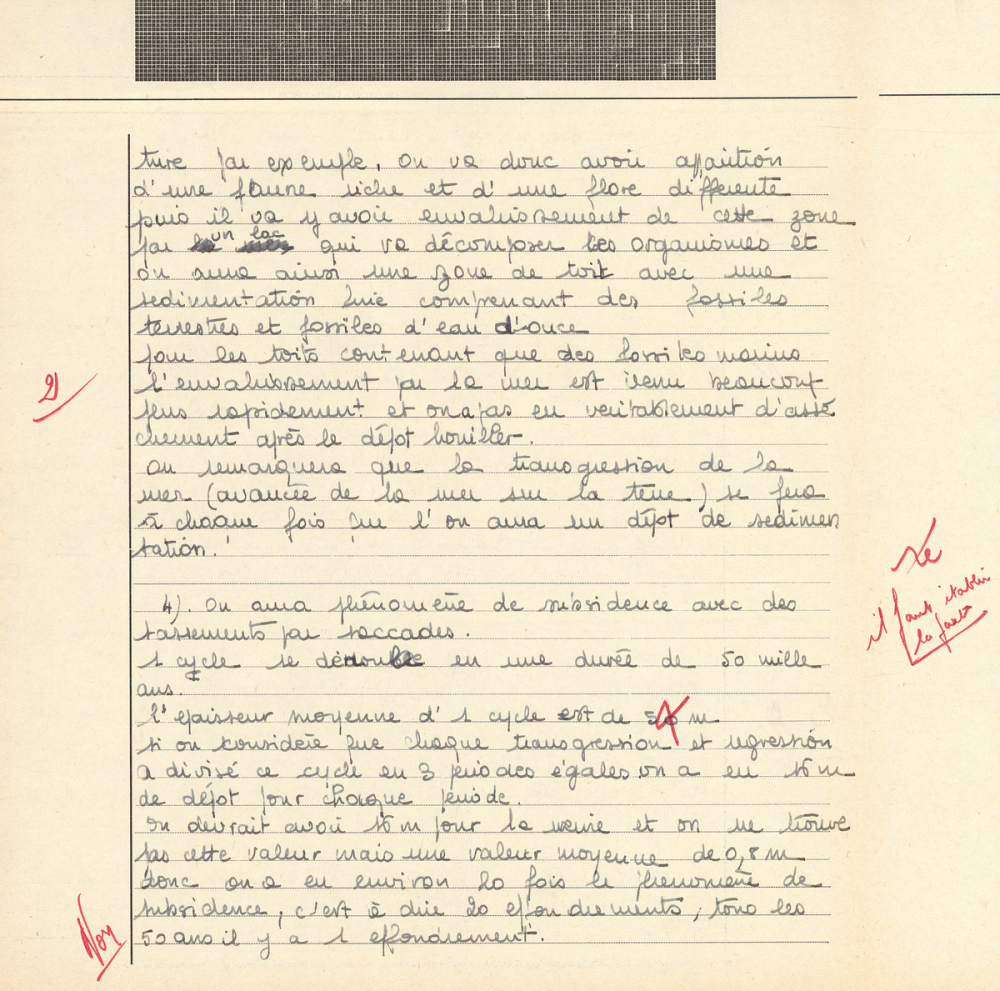 ture par exemple. On va donc avoir apparition
d'une faune riche et d'une flore différente
puis il va y avoir envahissement de cette zone
par un lac qui va décomposer les organismes et
on aura ainsi une zone de toit avec une
sédimentation fine comprenant des fossiles
terrestres et fossiles d'eau douce
pour les toits contenant que des fossiles marins
l'envahissement par la mer est venu beaucoup
plus rapidement et on a pas eu véritablement d'assé
chement après le dépot houiller.
On remarquera que la transgression de la
mer (avancée de la mer sur la terre) se fera
à chaque fois que l'on aura un dépot de sédimen
tation.
4). On aura phénomène de subsidence avec des
tassements par saccades.
1 cycle se déroule en une durée de 50 mille
ans.
l'épaisseur moyenne d'1 cycle est de m
si on considère que chaque transgression et regression
a divisé ce cycle en 3 periodes égales on a eu 16 m
de dépot pour chaque période.
On devrait avoir 16 m pour la veine et on ne trouve
pas cette valeur mais une valeur moyenne de 0,8 m
donc on a eu environ 20 fois le phénomène de
subsidence, c'est à dire 20 effondrements, tous les
50 ans il y a 1 effondrement.
2
il faut établir
la carte
Non